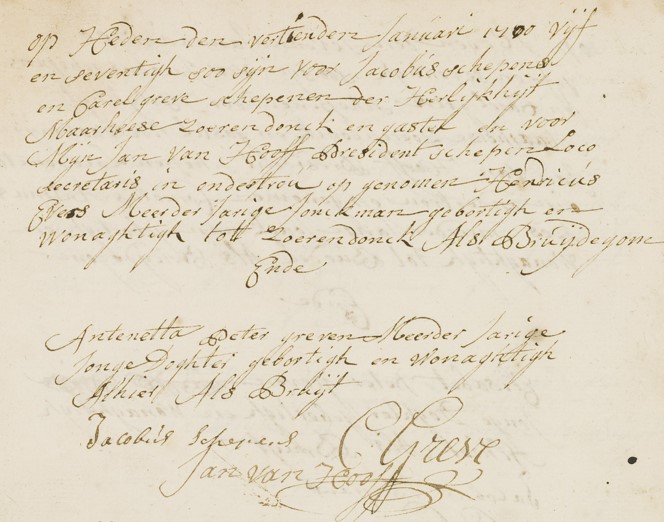 op Heden den vertienden Januari 1700 vijf
en seventigh soo sijn voor Jacobús schepens
en Carel greve schepenen der Herlijkhijt
Maarheese Zoerendonck en gastel en voor
Mijn Jan van Hooff President schepen Loco
secretaris in ondertroú op genomen Henricús
Evers Meerder Jarige Jonckman gebortigh en
wonaghtigh tott Zoerendonck Als Bruijdegom
Ende
Antenetta Peter greven Meerder Jarige
Jonge Doghter gebortigh en wonaghtigh
Alhier Als Bruijt
Jacobús schepens CGreve
Jan van Hooff